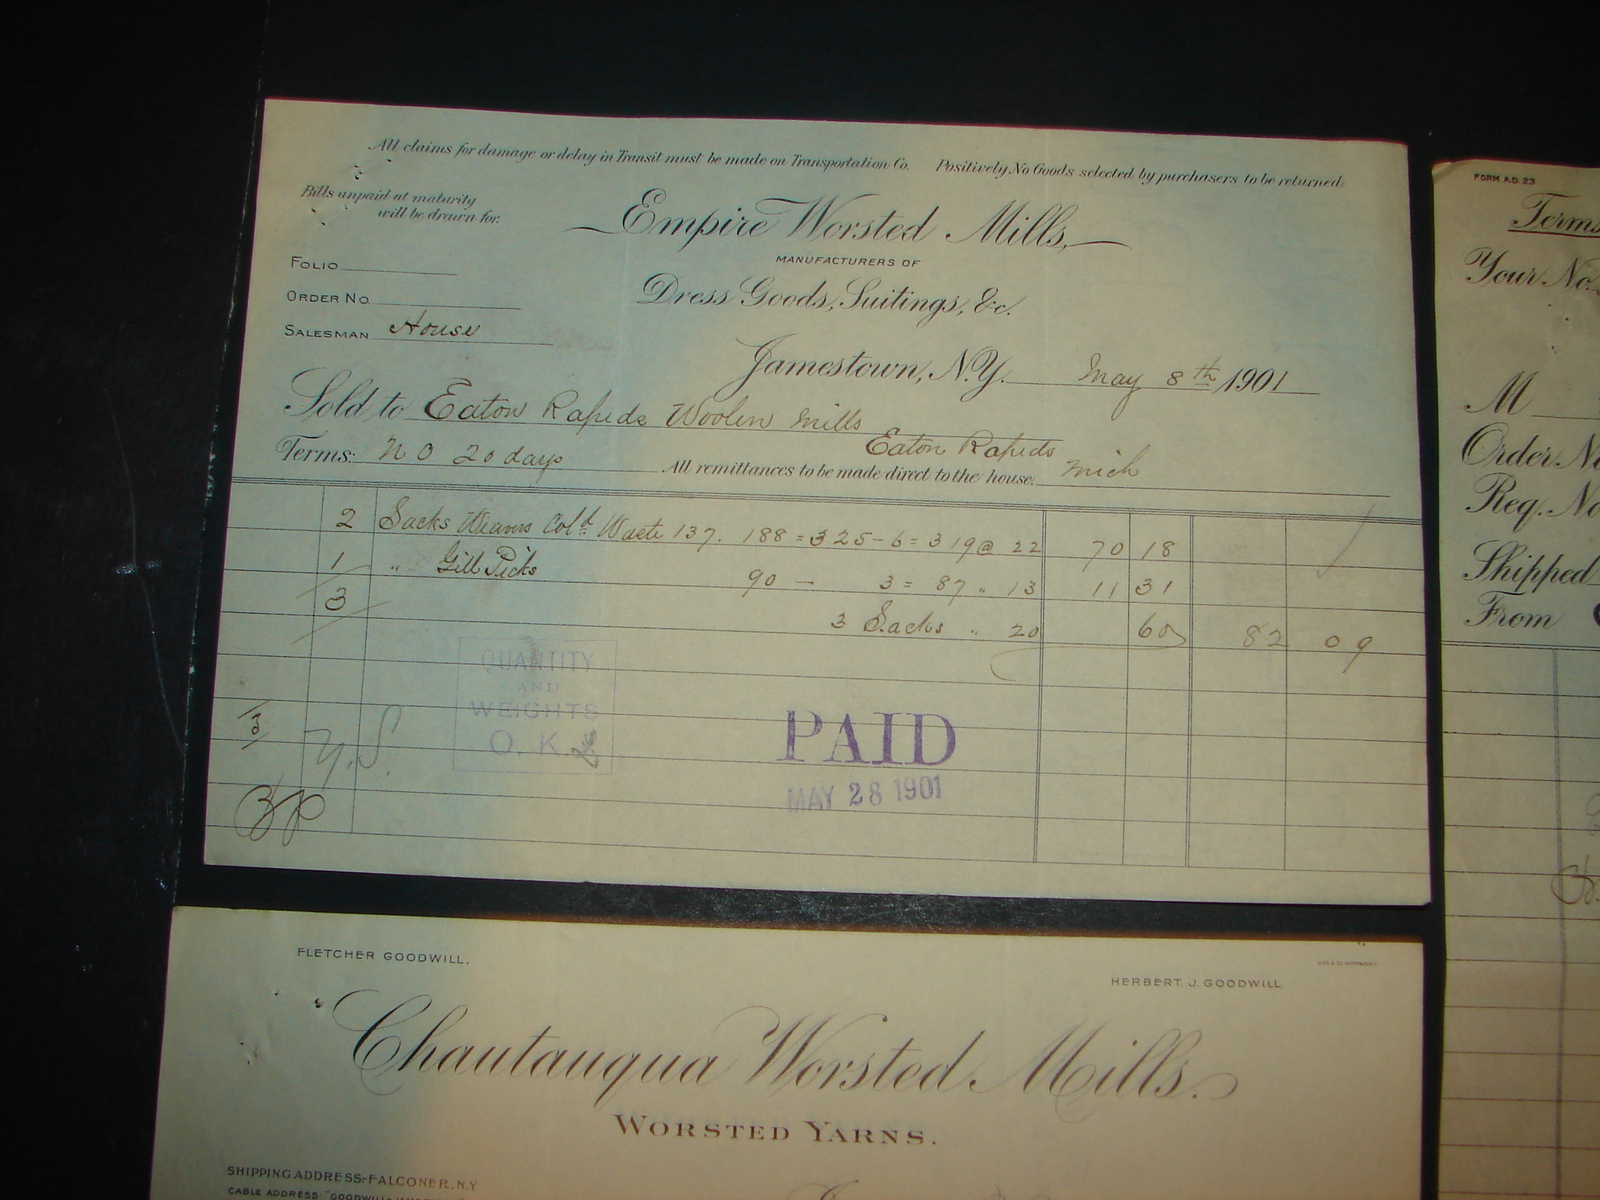 All claims for damage or delay in Transit must be made on Transportation Co. Positively No Goods selected by purchasers to be returned.
Bills unpaid at maturity
will be drawn for.
Empire Worsted Mills,
MANUFACTURERS OF
Dress Goods, Suitings, &c.
FOLIO
ORDER NO
SALESMAN House
Jamestown, N.Y. May 8th 1901
Sold to Eaton Rapids Woolen Mills
Eaton Rapids
Terms: N O 20 days All remittances to be made direct to the house. Mich
2 Sacks Col'd Waste 137. 188 = 325 - 6 = 319 @ 22 70 18
1 " Gill Picks 90 - 3 = 87 " 13 11 31
3
3 Sacks " 20 60 82 09
QUANTITY
AND
WEIGHTS
O. K.
3
PAID
MAY 28 1901
FLETCHER GOODWILL.
HERBERT. J. GOODWILL
Chautauqua Worsted Mills.
WORSTED YARNS.
SHIPPING ADDRESS:-FALCONER, N.Y
CABLE ADDRESS
FORM A.D. 23
Terms
Your No.
M
Order No
Req. No
Shipped
From